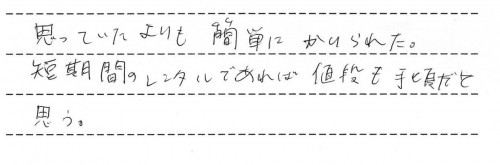 思っていたよりも 簡単に かりられた。
短期間のレンタルであれば 値段も手頃だと
思う。